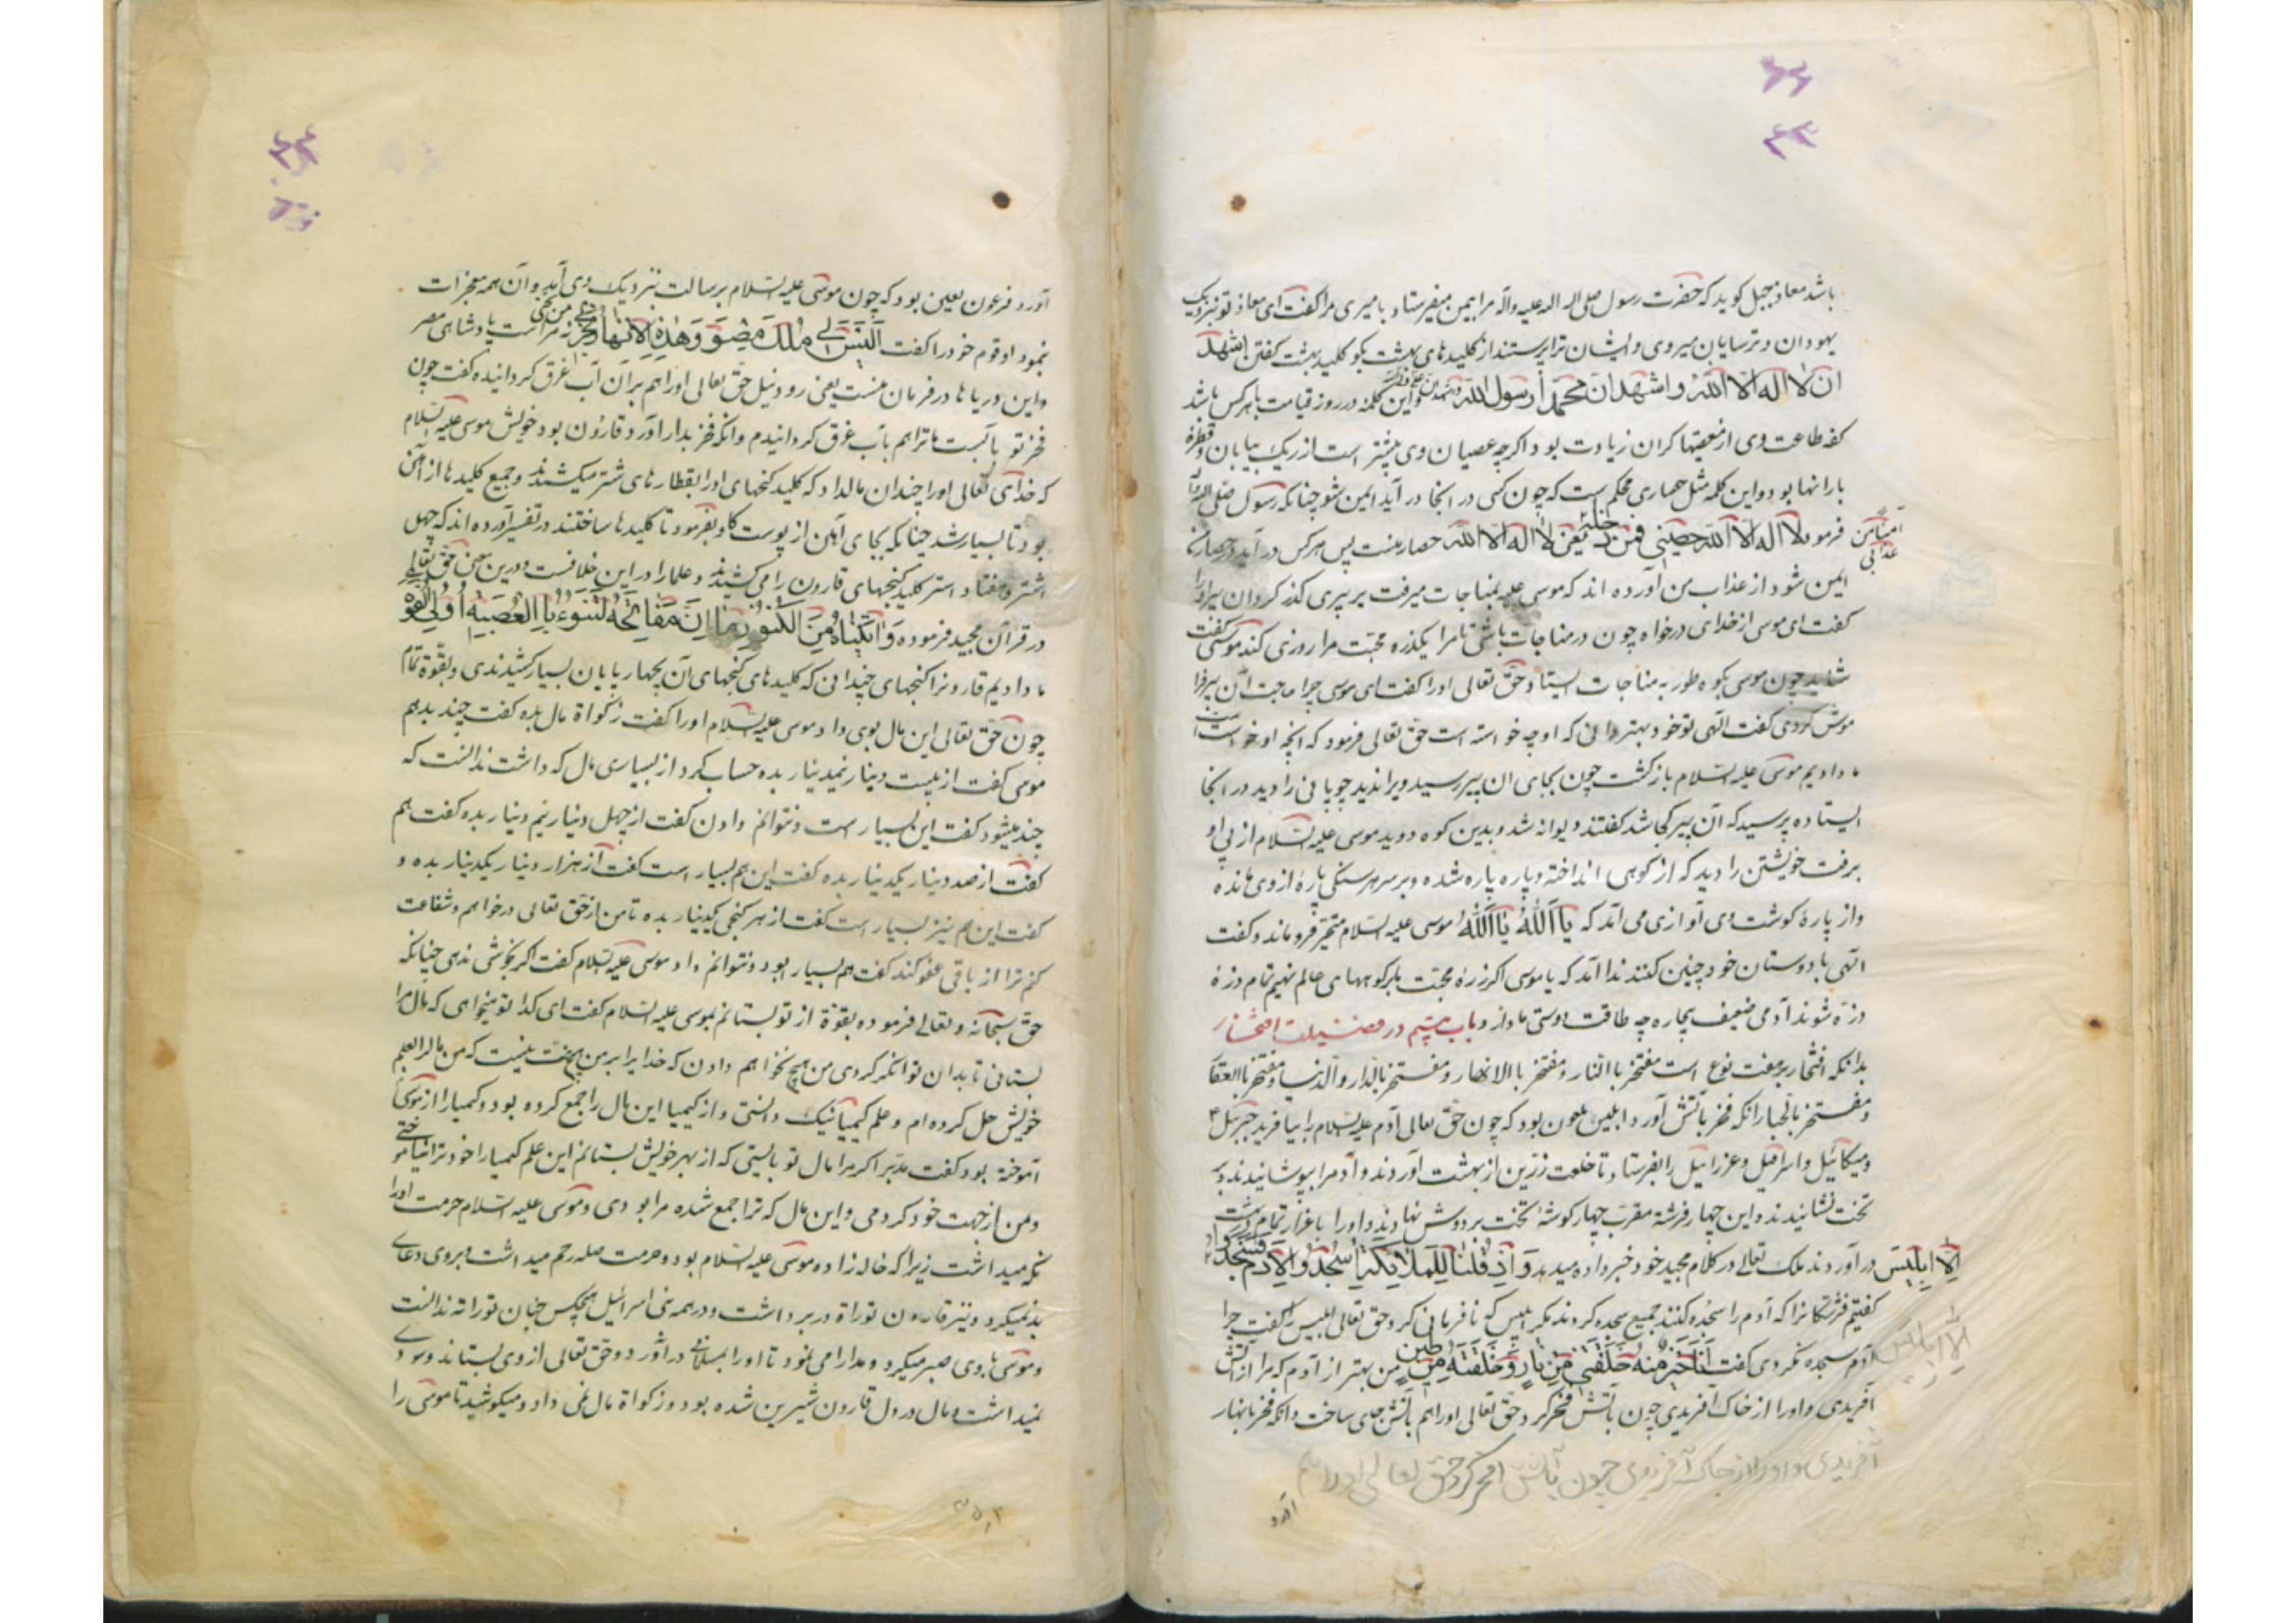 ۴۳
باشد معاذ جبل کوید که حضرت رسول صلی الله علیه وآله مرا بیمن میفرستاد بامیری مرا کفت ای معاذ تو بنزدیک
یهودان و ترسایان میروی و ایشان ترا پرسند از کلیدهای بهشت بکو کلید بهشت کفتن اشهد
ان لا اله الا الله و اشهد ان محمدا رسول الله واین کلمه در روز قیامت با هر کس باشد
کفه طاعت وی از معصیتها کران زیادت بود اکرچه عصیان وی بیشتر است از ریک بیابان و قطرهٔ
بارانها بود و این کلمه مثل حصاری محکم است که چون کسی در انجا در آید ایمن شود چنانکه رسول صلی الله
فرمود لا اله الا الله حصنی فمن دخل یعنی لا اله الا الله حصار منست پس هر کس در آید در حصار
امن من عذابی
ایمن شود از عذاب من آورده اند که موسی علیه بمناجات میرفت بر پیری کذر کرد ان پیر او را
کفت ای موسی از خدای درخواه چون در مناجات باشی تا مرا یکذره محبت مرا روزی کند موسی کفت
شاید چون موسی بکوه طور به مناجات ایستاد حق تعالی او را کفت ای موسی چرا حاجت آن پیر فرا
موش کردی کفت الهی تو خود بهتر دانی که او چه خواسته است حق تعالی فرمود که انچه او خواست
ما دادیم موسی علیه السلام بازکشت چون بجای ان پیر رسید ویرا ندید چوپانی را دید در انجا
ایستاده پرسید که آن پیر کجا شد کفتند دیوانه شد و بدین کوه دوید موسی علیه السلام از پی او
برفت خویشتن را دید که از کوهی انداخته و پاره پاره شده و بر سر هر سنکی پارهٔ از وی مانده
و از پارهٔ کوشت وی آوازی می آمد که یا الله یا الله موسی علیه السلام متحیر فرو ماند و کفت
الهی با دوستان خود چنین کنند ندا آمد که یا موسی اکر ذرهٔ محبت بر کوههای عالم نهیم تمام ذرهٔ
ذره شوند آدمی ضعیف بیچاره چه طاقت دوستی ما دارد باب بیستم در فضیلت افتخار
بدانکه افتخار بر هفت نوع است مفتخر باالنار و مفتخر باالانهار و مفتخر بالدار والدنیا و مفتخر باالعقا
و مفتخر بالجبار انکه فخر بآتش آورد ابلیس ملعون بود که چون حق تعالی آدم علیه السلام را بیافرید جبرئیل
و میکائیل و اسرافیل و عزرائیل را بفرستاد تا خلعت زرین از بهشت آوردند و آدم را بپوشانیدند و بر
تخت نشانیدند و این چهار فرشتهٔ مقرب چهار کوشهٔ تخت بر دوش نهادند و او را باعزاز تمام در بهشت
در آوردند ملک تعالی در کلام مجید خود خبر داده میدهد وَاِذ قُلنَا لِلمَلائِکَةِ اسجُدُوا لِآدَمَ فَسَجَدُوا
اِلّا اِبلیسَ
کفتیم فرشتکانرا که آدم را سجده کنند جمیع سجده کردند مکر ابلیس که نافرمانی کرد حق تعالی ابلیس را کفت چرا
الا ابلیس
آدم سجده نکردی کفت اَنَا خَیرٌ مِنهُ خَلَقتَنی مِن نارٍ وَخَلَقتَهُ مِن طین من بهتر از آدم که مرا از آتش
آفریدی و او را از خاک آفریدی چون بآتش فخر کرد حق تعالی او را هم بآتش جای ساخت و آنکه فخر بانهار
آفریدی و اورا از خاک آفریدی چون بآتش افخر کرد حق تعالی او را هم
آورد
۴۴
آورد فرعون لعین بود که چون موسی علیه السلام برسالت بنزدیک وی آمد و آن همه معجزات
بنمود او قوم خود را کفت اَلَیسَ لی مُلکُ مِصرَ وَهذِهِ الاَنهارُ تَجری مِن تَحتی نه مراست پادشاهی مصر
و این دریاها در فرمان منست یعنی رود نیل حق تعالی او را هم بران آب غرق کردانید کفت چون
فخر تو بآبست ما ترا هم بآب غرق کردانیدیم وانکه فخر بدار آورد قارون بود خویش موسی علیه السلام
که خدای تعالی او را چندان مال داد که کلید کنجهای او را بقطارهای شتر میکشیدند و جمیع کلیدها از آهن
بود تا بسیار شد چنانکه بجای آهن از پوست کاو بفرمود تا کلیدها ساختند در تفسیر آورده اند که چهل
اشتر و هفتاد استر کلید کنجهای قارون را می کشیدند و علما را در این خلافست و درین سخن حق تعالی
در قرآن مجید فرموده وَآتَیناهُ مِنَ الکُنُوزِ ما اِنَّ مَفاتِحَهُ لَتَنُوءُ بِاالعُصبَةِ اُولِی القُوَّة
ما دادیم قارونرا کنجهای چندانی که کلیدهای کنجهای آن بچهار پایان بسیار کشیدندی و بقوة تمام
چون حق تعالی این مال بوی داد موسی علیه السلام او را کفت زکواة مال بده کفت چند بدهم
موسی کفت از بیست دینار نیمدینار بده حساب کرد از بسیاری مال که داشت ندانست که
چند میشود کفت این بسیار است و نتوانم دادن کفت از چهل دینار نیم دینار بده کفت هم
کفت از صد دینار یکدینار بده کفت این هم بسیار است کفت از هزار دینار یکدینار بده و
کفت این هم نیز بسیار است کفت از هر کنجی یکدینار بده تا من از حق تعالی درخواهم و شفاعت
کنم ترا از باقی عفو کند کفت هم بسیار بود و نتوانم داد موسی علیه السلام کفت اکر بخوشی ندهی چنانکه
حق سبحانه و تعالی فرموده بقوة از تو بستانم بموسی علیه السلام کفت ای کدا تو میخواهی که مال مرا
بستانی تا بدان توانکر کردی من هیچ نخواهم دادن که خدایرا بر من هیچ منت نیست که من مالرا بعلم
خویش حل کرده ام و علم کیمیا نیک دانستی و از کیمیا این مال را جمع کرده بود و کیمیا را از موسی
آموخته بود کفت مدبر اکر مرا مال تو بایستی که از بهر خویش بستانم این علم کیمیا را خود ترا نیاموختی
و من از جهت خود کردمی و این مال که ترا جمع شده مرا بودی و موسی علیه السلام حرمت او را
نکه میداشت زیرا که خاله زاده موسی علیه السلام بود و حرمت صله رحم میداشت و بر وی دعای
بد نمیکرد و نیز قارون توراة در بر داشت و در همه بنی اسرائیل هیچکس چنان توراته ندانست
و موسی با وی صبر میکرد و مدارا می نمود تا او را باسلام در آورد و حق تعالی از وی بستاند و سودی
نمیداشت و مال در دل قارون شیرین شده بود و زکواة مال نمی داد و میکوشید تا موسی را